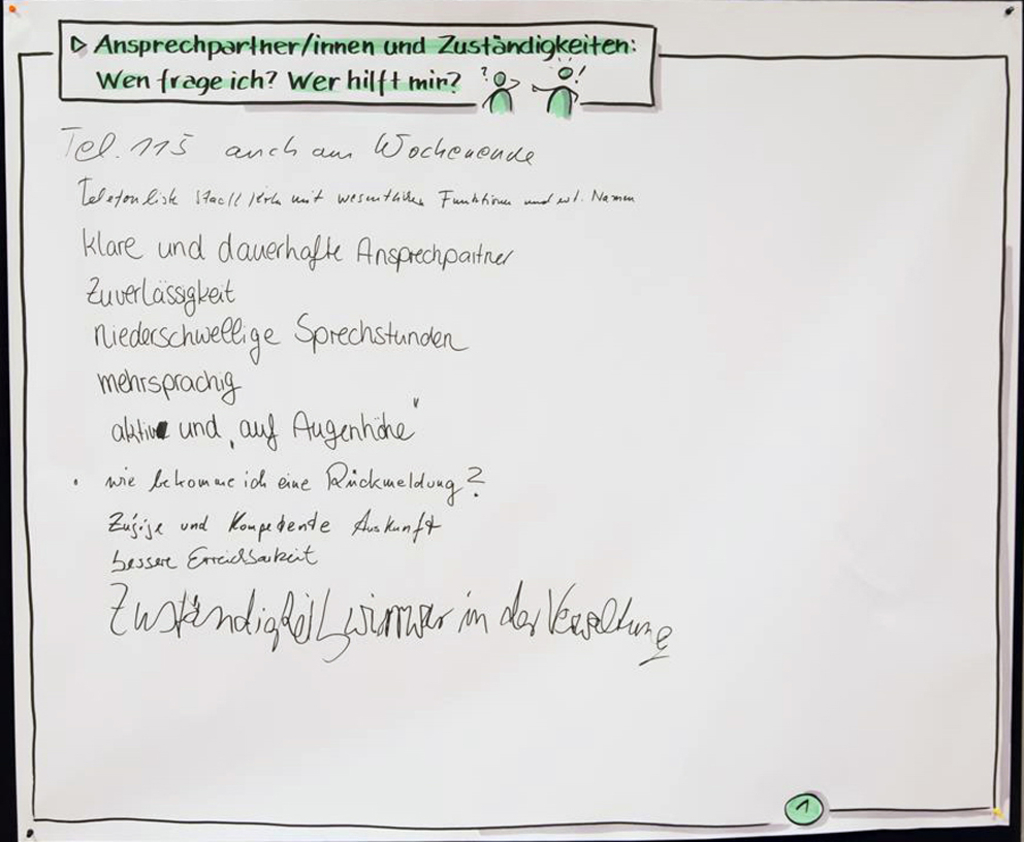 ▷ Ansprechpartner/innen und Zuständigkeiten:
Wen frage ich? Wer hilft mir?
? !
Tel. 115 auch am Wochenende
Telefonliste mit wesentlichen Funktionen und Namen
klare und dauerhafte Ansprechpartner
Zuverlässigkeit
niederschwellige Sprechstunden
mehrsprachig
aktive und „auf Augenhöhe"
• wie bekomme ich eine Rückmeldung?
Zügige und kompetente Auskunft
bessere Erreichbarkeit
in der Verwaltung
1